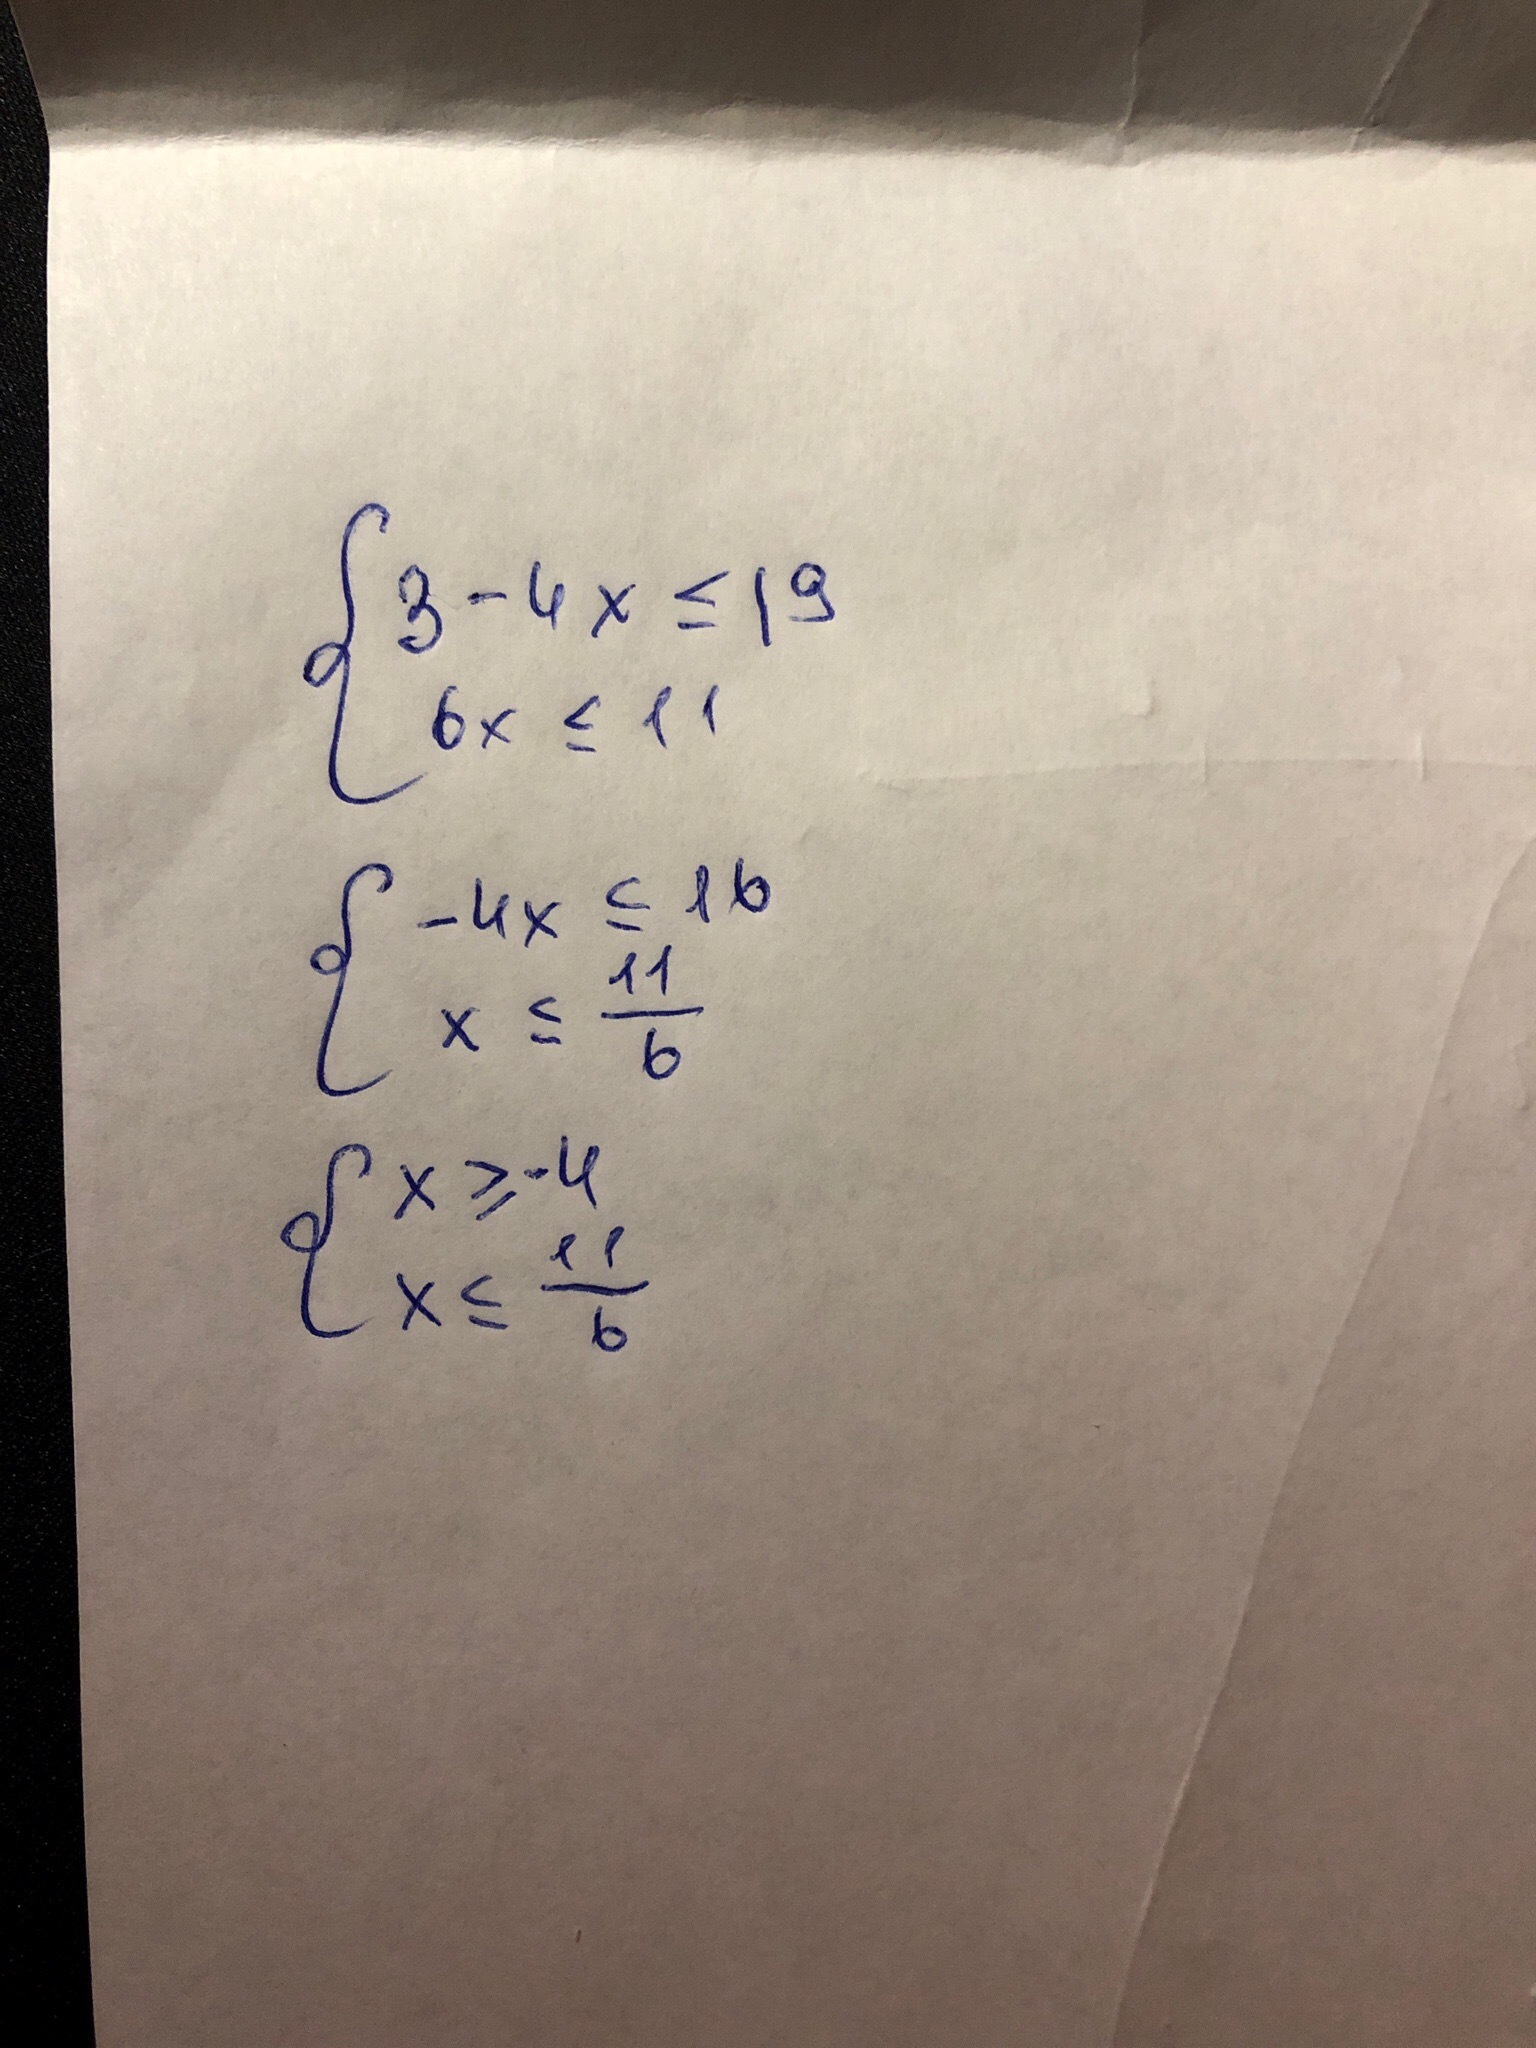 3 - 4x ≤ 19
6x ≤ 11
-4x ≤ 16
x ≤ 11/6
x ≥ -4
x ≤ 11/6